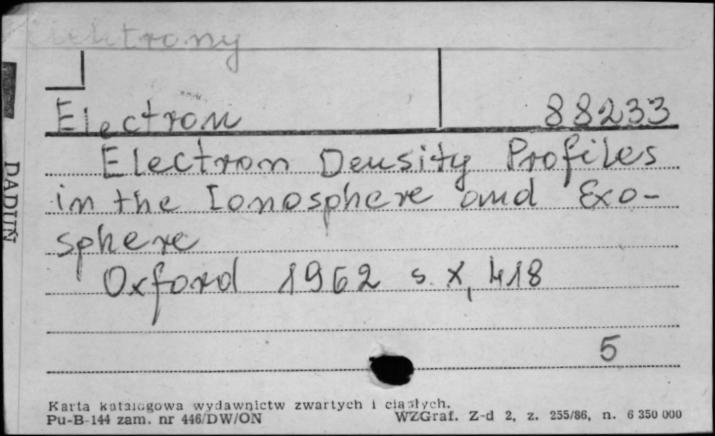 Elektrony
Electron 88233
Electron Density Profiles
in the Ionosphere and Exo-
sphere
Oxford 1962 s. X, 418
5
DADUN
Karta katalogowa wydawnictw zwartych i ciągłych.
Pu-B-144 zam. nr 446/DW/ON WZGraf. Z-d 2, z. 255/86, n. 6 350 000